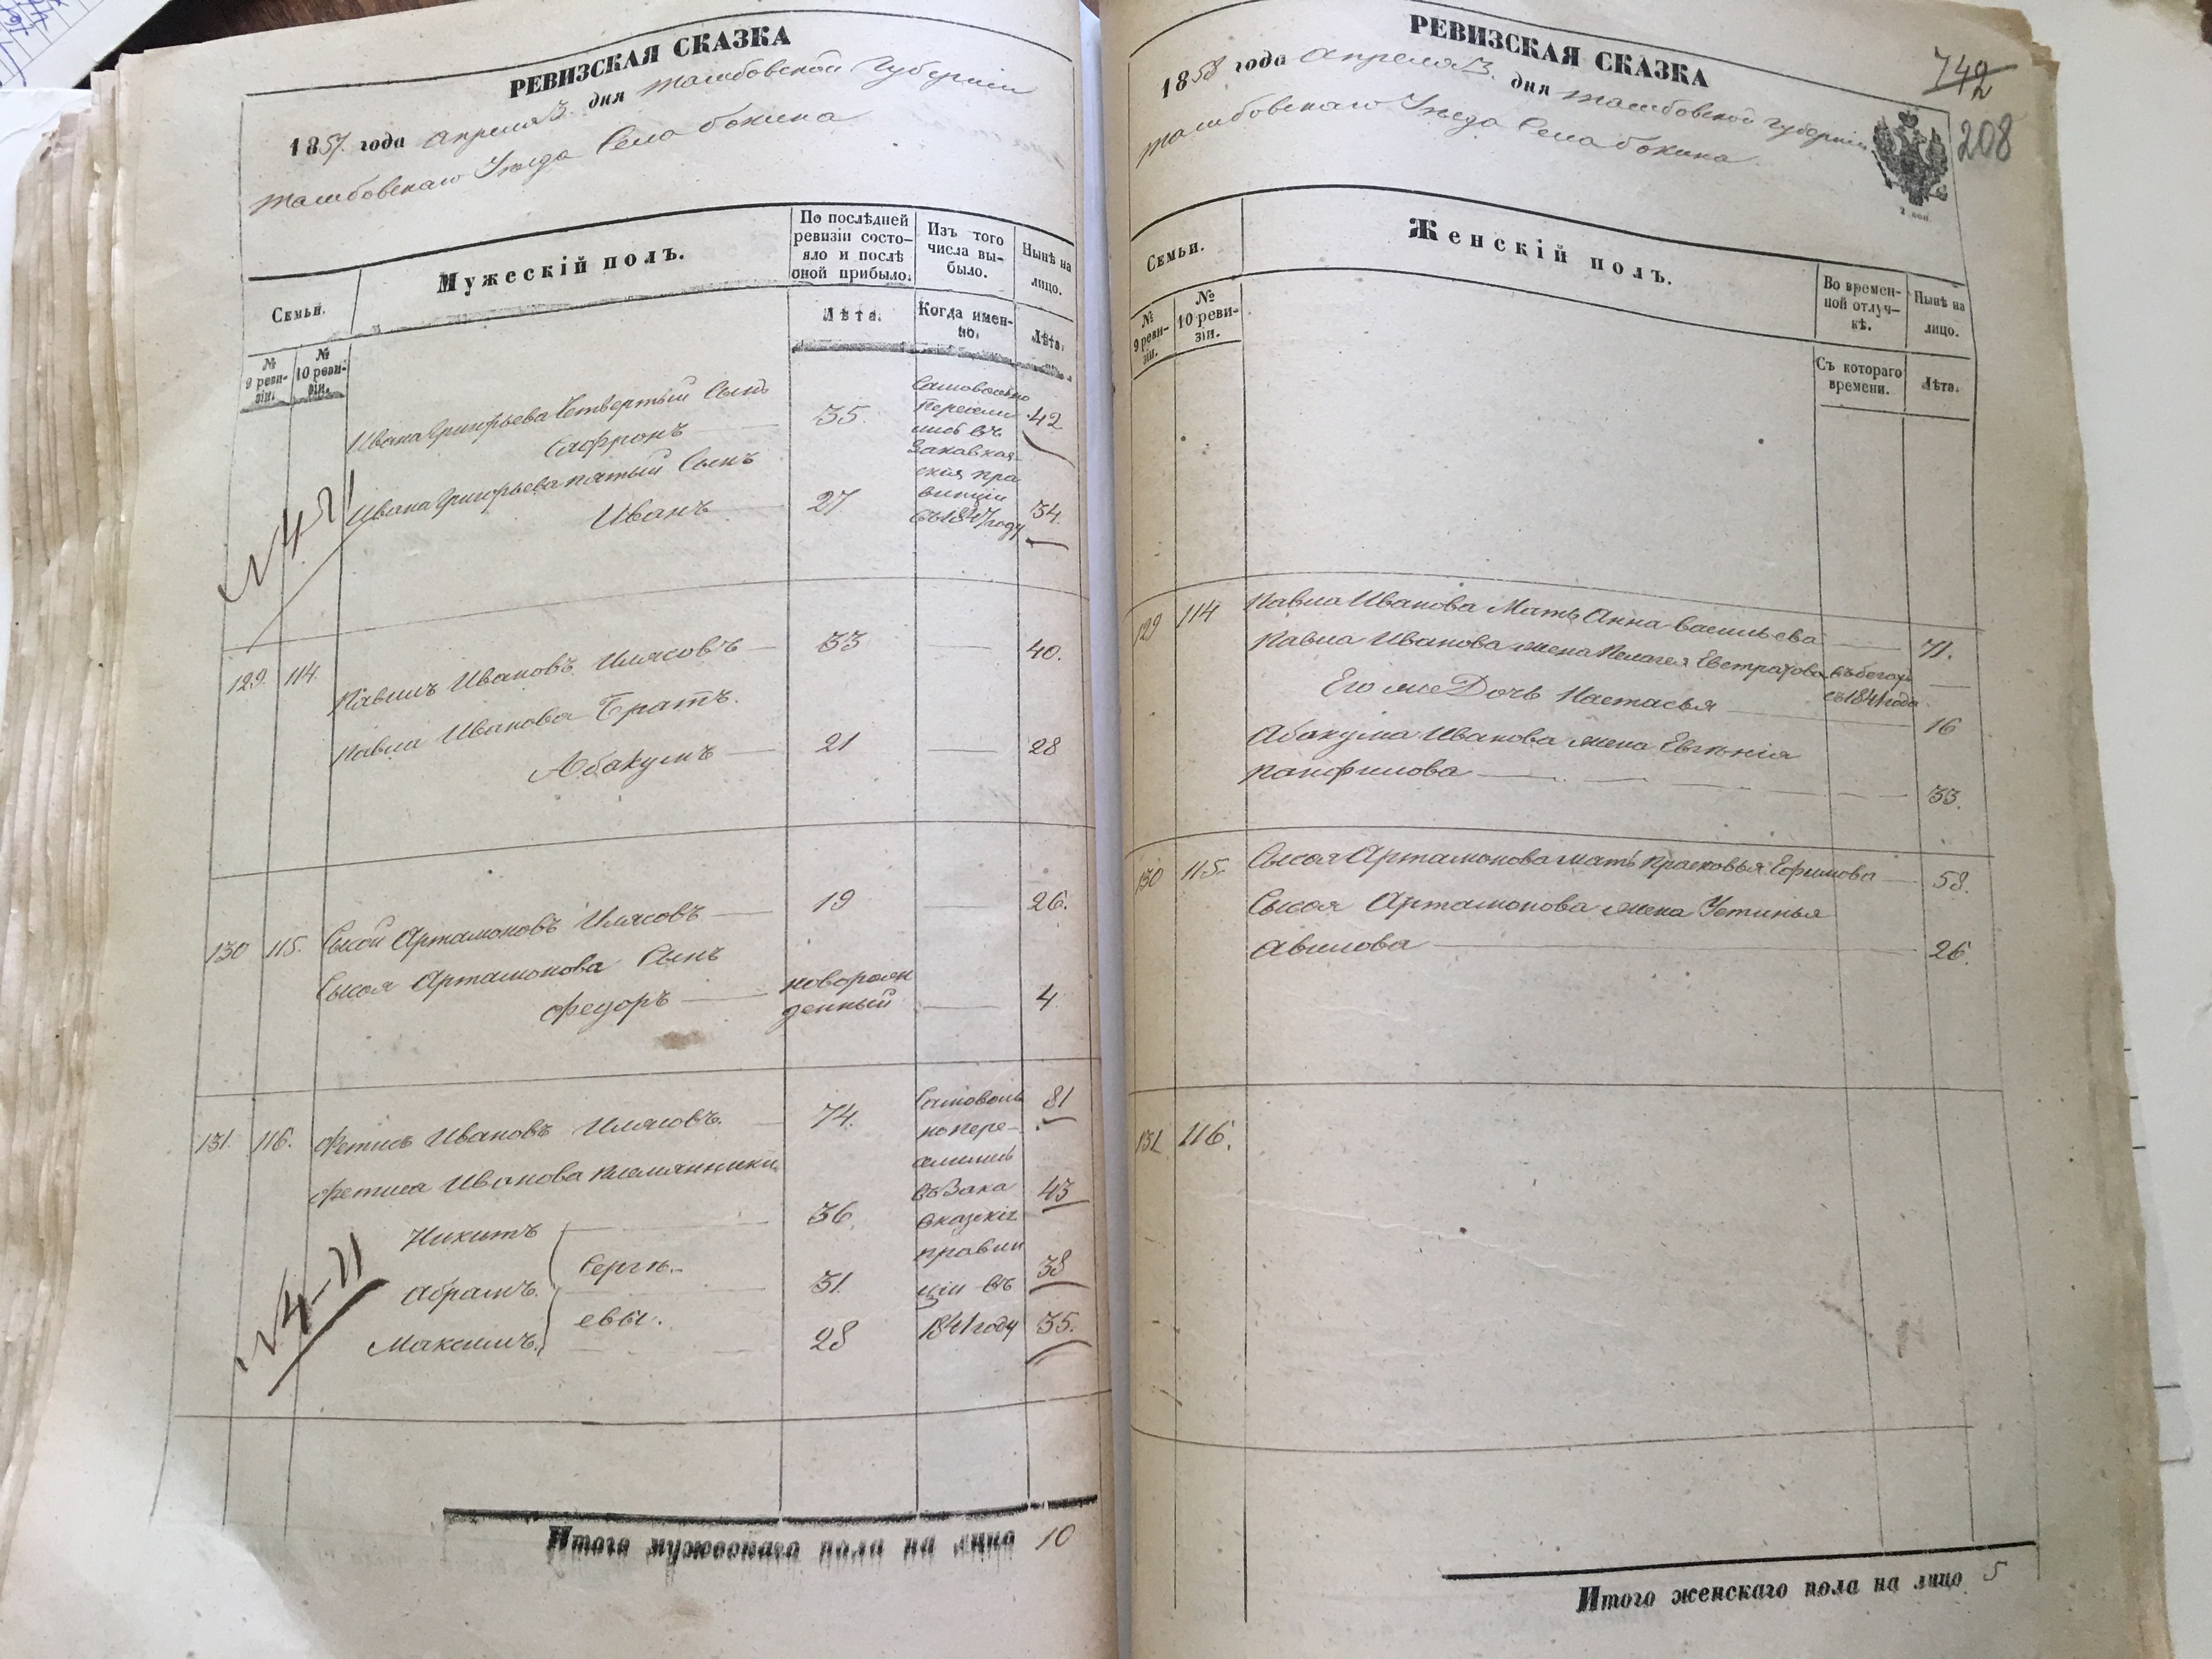 РЕВИЗСКАЯ СКАЗКА
1857 года апреля 3 дня Тамбовской Губернии
Тамбовскаго Уезда Села бокина
Семьи.
Мужескій полъ.
По послѣдней ревизіи состо-
яло и послѣ оной прибыло.
Изъ того числа вы-
было.
Нынѣ на лицо.
№ 9 реви-
зіи.
№ 10 реви-
зіи.
Лѣта.
Когда имен-
но.
Лѣта.
Ивана Григорьева Четвертый Сынъ
Сафронъ 35. 42
Ивана Григорьева пятый Сынъ
Иванъ 27 34.
Самовольно
Пересели
лись въ
Закавказ-
скія про
винціи
въ 1847 году
129. 114.
Павилъ Ивановъ Илясовъ 33 40.
Павла Иванова Братъ.
Абакумъ 21 28
130 115.
Сысой Артамоновъ Илясовъ 19 26.
Сысоя Артамонова Сынъ
Федоръ новорож
денный 4
131. 116.
Фетисъ Ивановъ Илясовъ. 74. 81
Фетиса Иванова племянники
Никитъ 36. 43
Абрамъ. Сергѣ- 31. 38
Максимъ. евы. 28 35.
Самоволь
но пере-
въ Зака
вказкіе
правин
ціи въ
1841 году
Итого мужескаго пола на лицо 10
РЕВИЗСКАЯ СКАЗКА
1858 года апреля 3. дня Тамбовской губерніи
Тамбовскаго Уезда Села бокина
742
208
2 коп.
Семьи.
Женскій полъ.
№ 9 реви-
зіи.
№ 10 реви-
зіи.
Во времен-
ной отлуч-
кѣ.
Нынѣ на лицо.
Съ котораго времени.
Лѣта.
129 114 Павла Иванова Мать Анна васильева 71.
Павла Иванова жена Пелагея Евстратова въ бегахъ
съ 1841 года
Его же Дочь Настасья 16
Абакума Иванова жена Евгѣнія
панфилова 33.
130 115. Сысоя Артамонова мать Прасковья Ефимова 58.
Сысоя Артамонова жена Устинья
Авилова 26.
131. 116.
Итого женскаго пола на лицо 5